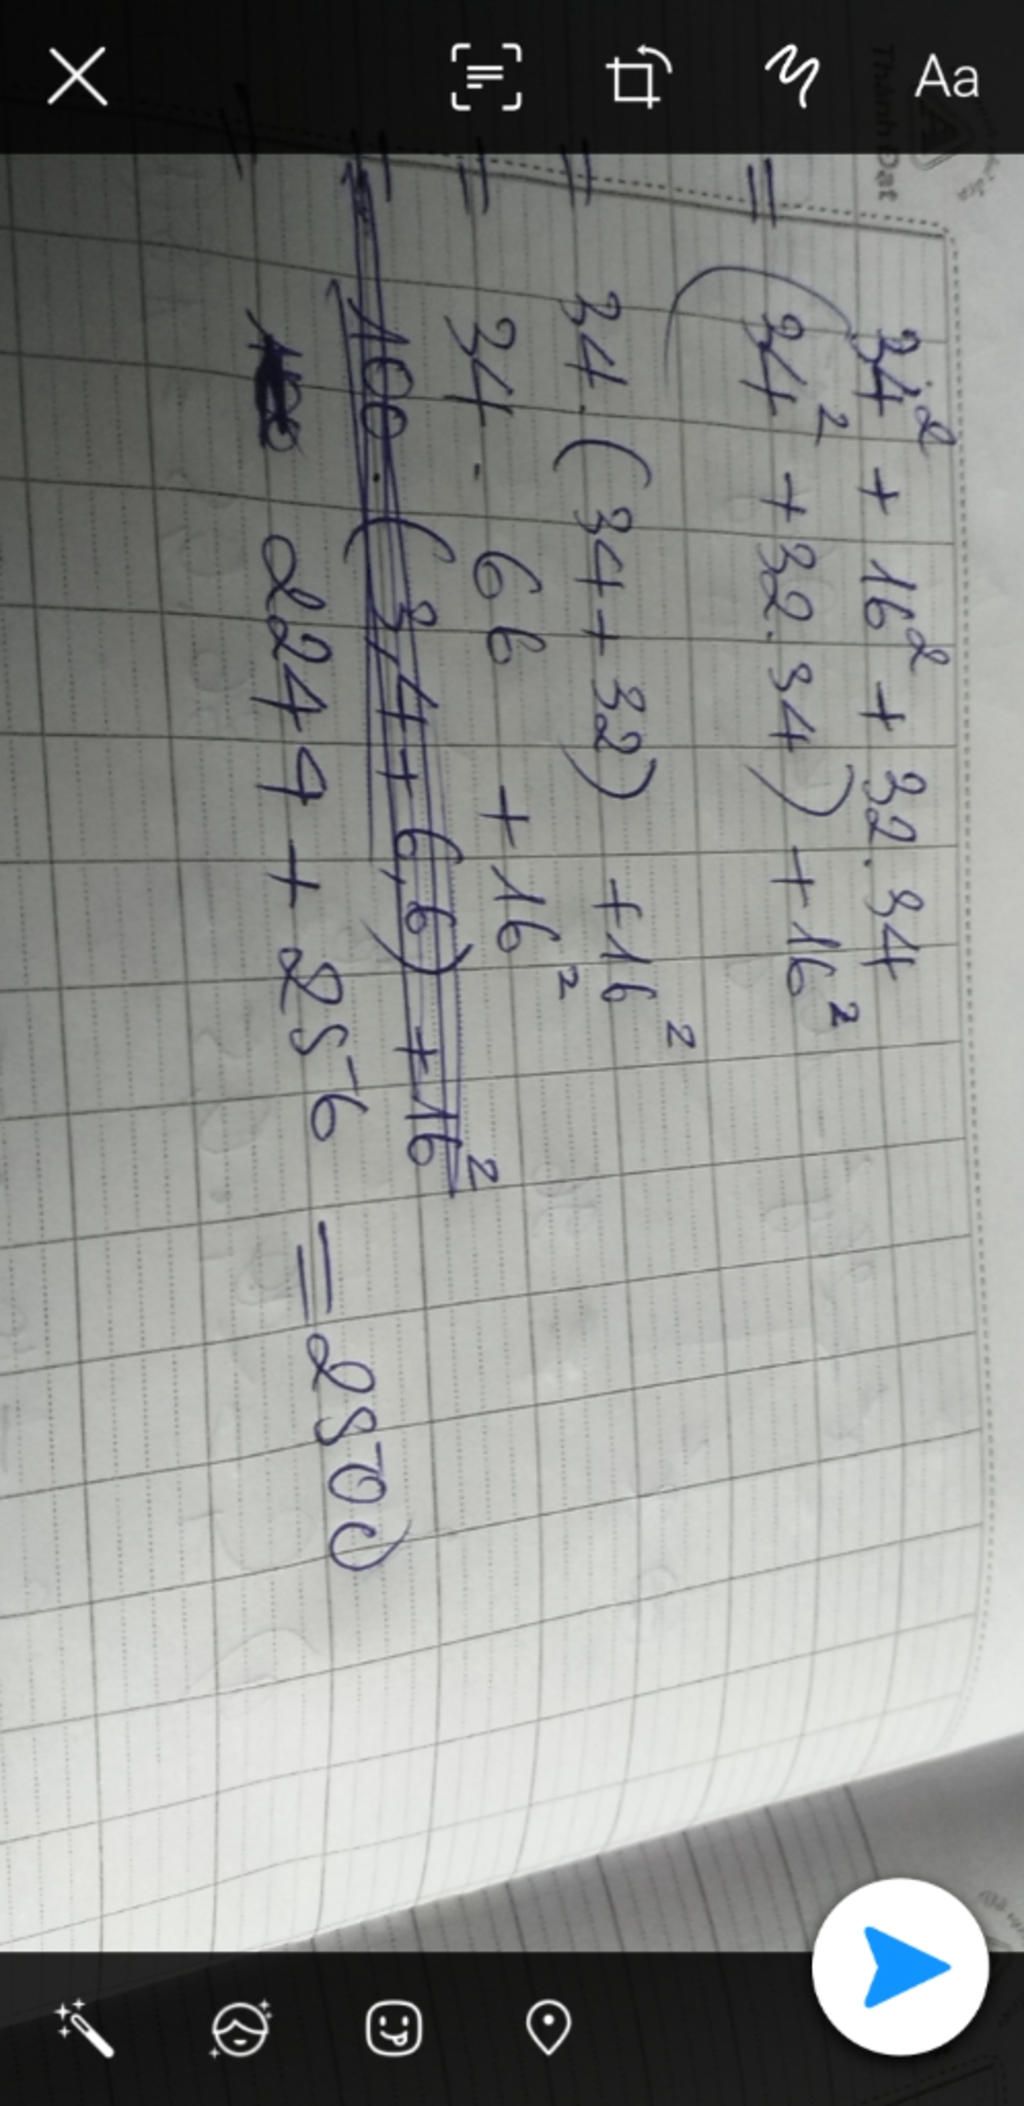 Aa
Thành Đạt
34² + 16² + 32.34
= (34² + 32.34) + 16²
= 34.(34+32) + 16²
= 34.66 + 16²
= 100.(3,4+6,6)+16²
= 2244 + 256 = 2500